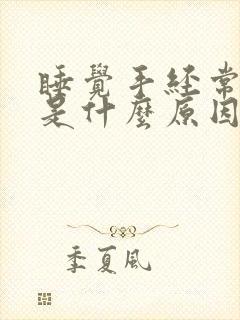 睡覺手経常
是什麼原因
季夏風